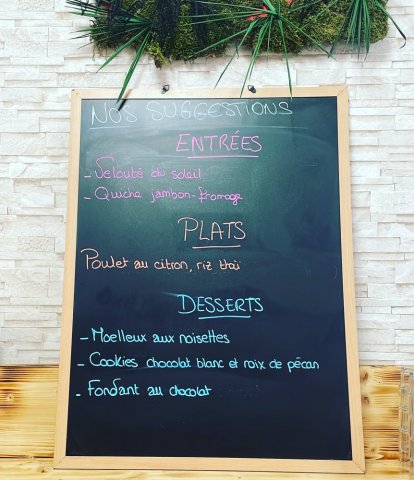 NOS SUGGESTIONS
ENTRÉES
- Velouté du soleil
- Quiche jambon-fromage
PLATS
Poulet au citron, riz thaï
DESSERTS
- Moelleux aux noisettes
- Cookies chocolat blanc et noix de pécan
- Fondant au chocolat